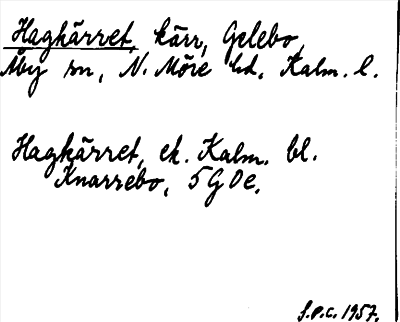 Hagkärret, kärr, Gelebo,
Åby sn, N. Möre hd. Kalm. l.
Hagkärret, ek. Kalm. bl.
Knarrebo, 5 G 0 e.
S.P.C. 1957.